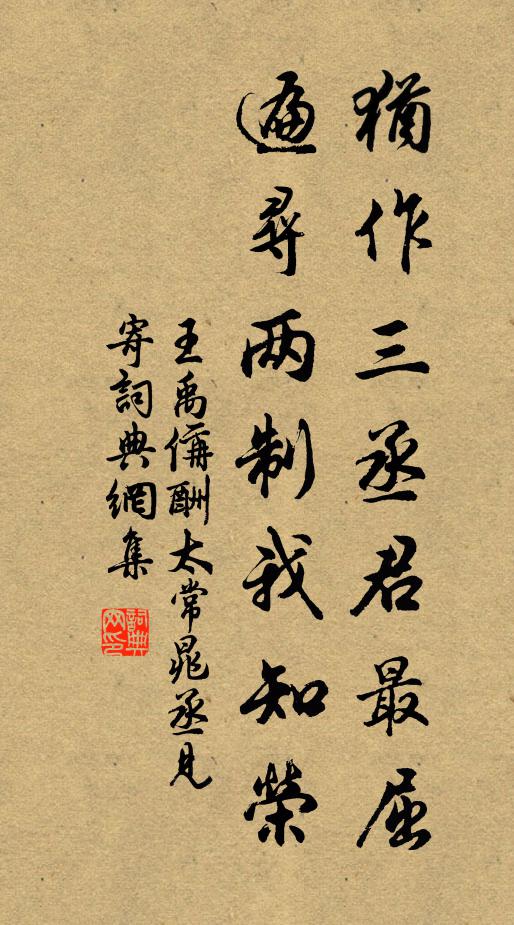 猶作三丞君最屈
遍尋兩制我知榮
王禹偁酬太常晁丞見
寄詞典網集
詞典
网印